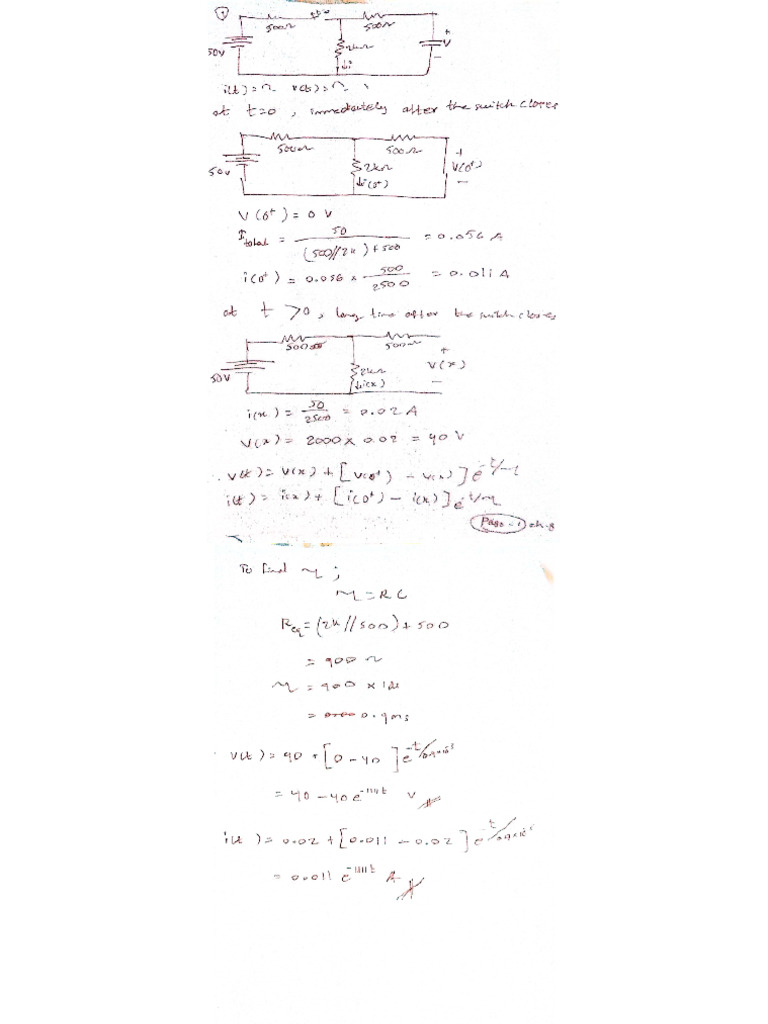 1
500Ω t=0 500Ω
50V 2kΩ + V -
↓i
i(t) = ? v(t) = ?
at t=0, immediately after the switch closes
500Ω 500Ω
50V 2kΩ + V(0⁺) -
↓i(0⁺)
V(0⁺) = 0 V
I total = 50 / ((500//2k) + 500) = 0.056 A
i(0⁺) = 0.056 × 500/2500 = 0.011 A
at t >0, long time after the switch closes
500Ω 500Ω
50V 2kΩ + V(∝) -
↓i(∝)
i(∝) = 50/2500 = 0.02 A
V(∝) = 2000 × 0.02 = 40 V
v(t) = V(∝) + [V(0⁺) - V(∝)] e^-t/τ
i(t) = i(∝) + [i(0⁺) - i(∝)] e^-t/τ
Page-1 ch-8
To find τ;
τ = RC
Req = (2k//500) + 500
= 900 Ω
τ = 900 × 1μ
= 0.9ms
V(t) = 40 + [0 - 40] e^-t/0.9×10⁻³
= 40 - 40 e^-1111t V
i(t) = 0.02 + [0.011 - 0.02] e^-t/0.9×10⁻³
= 0.011 e^-1111t A